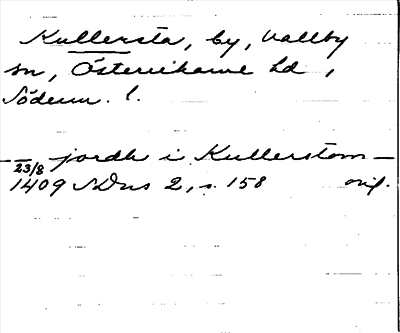 Kullersta, by, Vallby
sn, Österrekarne hd,
Söderm. l.
— jordh i Kullerstom —
23/8
1409 SDns 2, s. 158 orig.